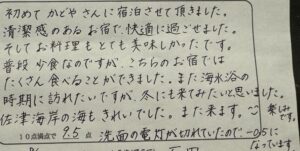 初めて かどや さんに宿泊させて頂きました。
清潔感のあるお宿で、快適に過ごせました。
そしてお料理もとても美味しかったです。
普段 少食なのですが、こちらのお宿では
たくさん食べることができました。また海水浴の
時期に訪れたいですが、冬にも来てみたいと思いました。
佐津海岸の海もきれいでした。また来ます。
楽しみです。
10点満点で 9.5 点 洗面の電灯が切れていたので -0.5に
なっています